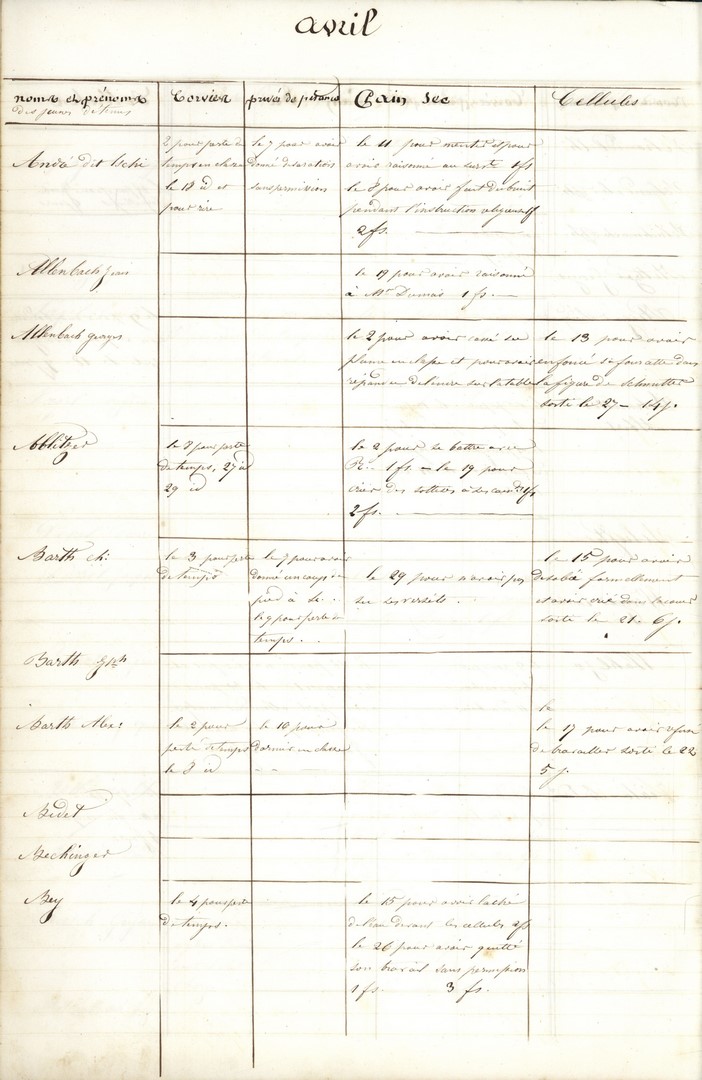 avril
noms et prénoms
des jeunes détenus
Corvées
privés de
Pain sec
Cellules
André dit
2 pour perte de
temps en classe
le 18 id et
pour rire
le 7 pour avoir
donné
sans permission
le 11 pour mentir et pour
avoir raisonné au 1 fs
le 8 pour avoir fait du bruit
pendant l'instruction religieuse 1f
2 fs.
Allenbach
le 19 pour avoir raisonné
à Mr Dumas 1 fs.
Allenbach georges
le 2 pour avoir cassé sa
plume en classe et pour avoir
répandu de l'encre sur la table
le 13 pour avoir
enfoncé sa fourchette dans
la figure de Schmutter
sorti le 27 - 14 j.
Abblitzer
le 8 pour perte
de temps, 27 id
29 id
le 2 pour se battre avec
R.. 1 fs. - le 19 pour
crier des sottises à ses cam.des 1 fs
2 fs.
Barth ch:
le 3 pour perte
de temps
le 7 pour avoir
donné un coup de
pied à Le.
le 9 pour perte de
temps.
le 29 pour n'avoir pas
su ses versets.
le 15 pour avoir
désobéi formellement
et avoir crié dans la cour
sorti le 21. 6 j.
Barth Jph
Barth Alex:
le 2 pour
perte de temps
le 8 id
le 10 pour
dormir en classe
le
le 17 pour avoir refusé
de travailler sorti le 22
5 j.
Bedet
Bechinger
Bey
le 4 pour perte
de temps.
le 15 pour avoir lâché
de l'eau devant les cellules 2 fs
le 26 pour avoir quitté
son travail sans permission
1 fs. 3 fs.